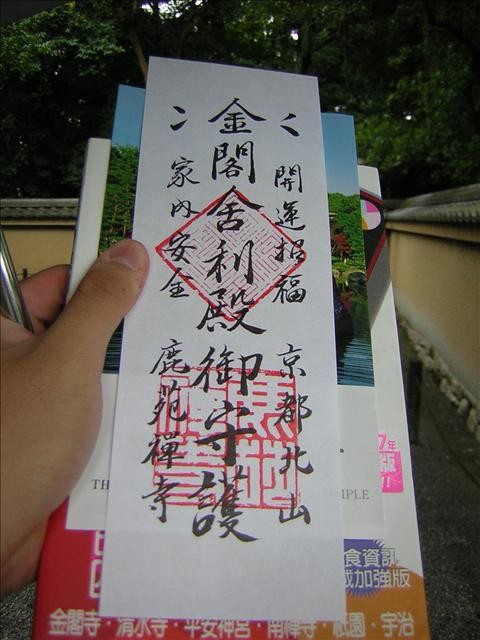 開運招福 京都北山
金閣舍利殿御守護
家内安全 鹿苑禪寺
TH
MPLE
7年
版
!!
食資訊
加強版
金閣寺・清水寺・平安神宮・南禪寺・祇園・宇治